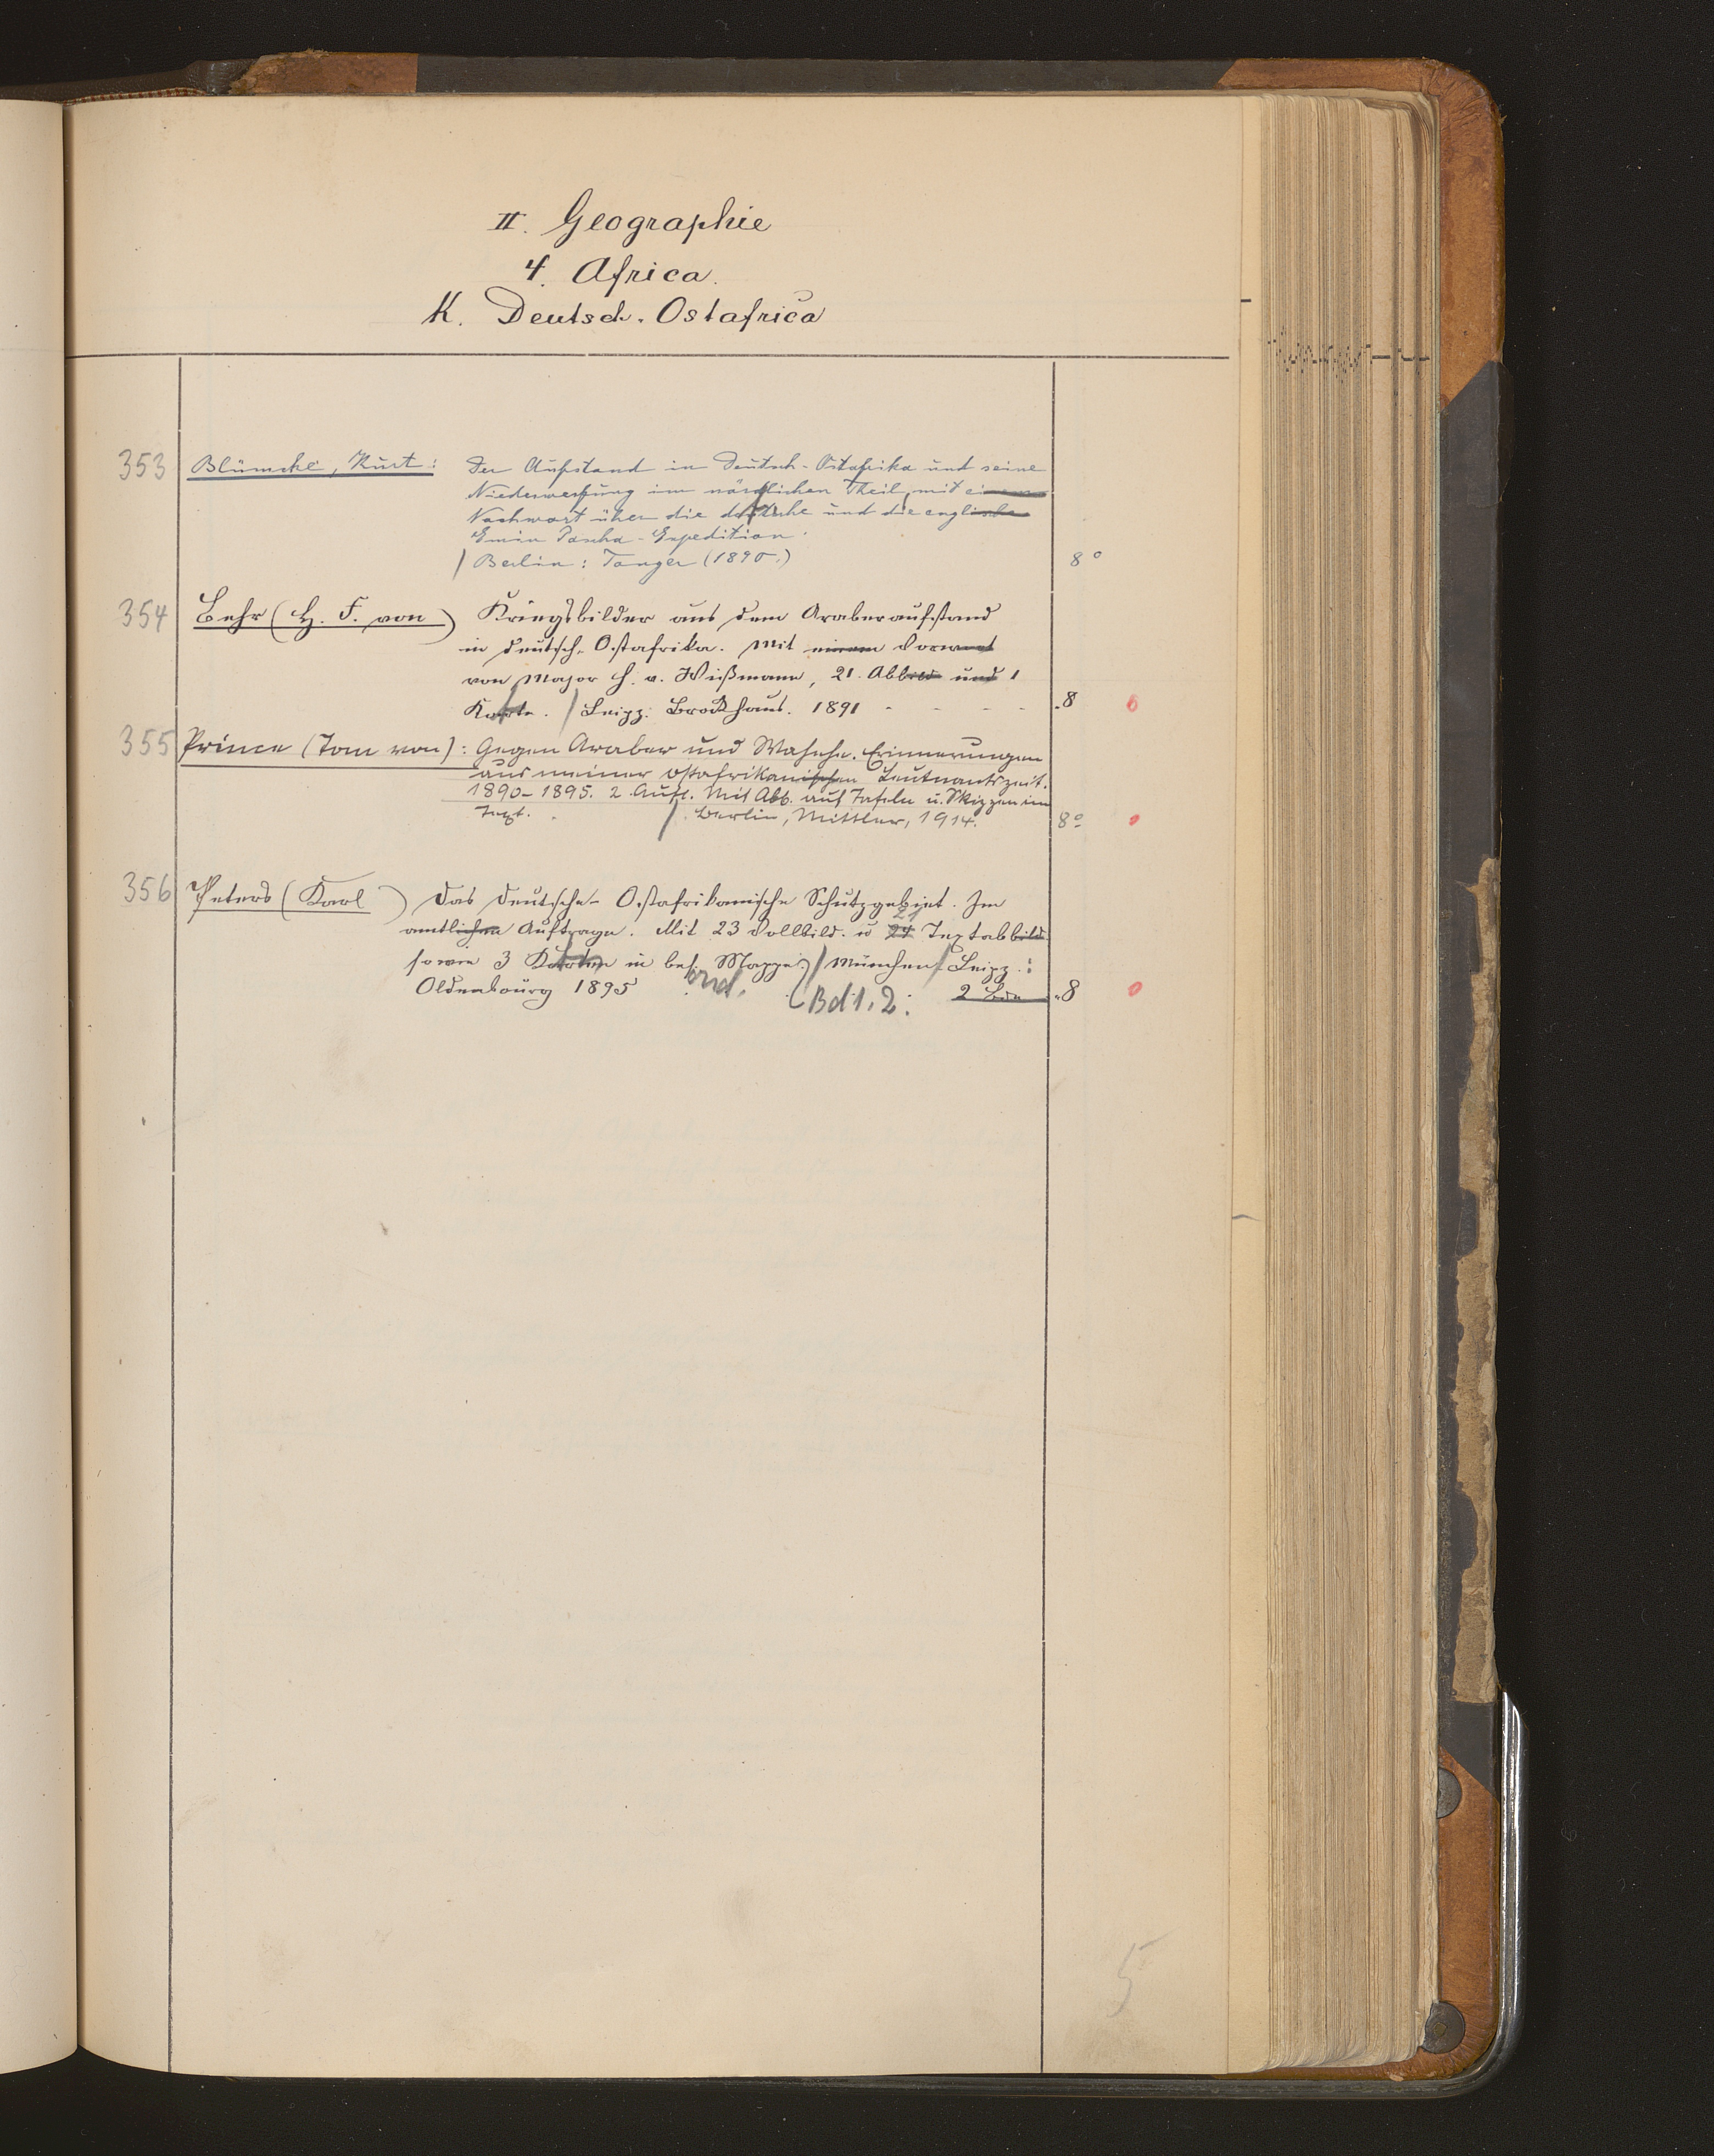 II. Geographie
4. Africa.
K. Deutsch. Ostafrica
353 Blümcke, Kurt: Der Aufstand in Deutsch-Ostafrika und seine
Niederwerfung im nördlichen Theil, mit einem
Nachwort über die deutsche und die englische
Emin Pascha-Expedition.
/ Berlin: Tanger (1890.) 8°
354 Behr (H. F. von) Kriegsbilder aus dem Araberaufstand
in Deutsch-Ostafrika. Mit einem Vorwort
von Major H. v. Wißmann, 21 Abbild und 1
Karte. / Leipz: Brockhaus. 1891 - - - - 8 0
355 Prince (Tom von): Gegen Araber und Wahehe. Erinnerungen
aus meiner ostafrikanischen Leutnantszeit.
1890-1895. 2. Aufl. Mit Abb. auf Tafeln u. Skizzen im
Text. / Berlin, Mittler, 1914. 8° 0
356 Peters (Karl) Das Deutsche-Ostafrikanische Schutzgebiet. Im
21
amtlichen Auftrage. Mit 23 Vollbild. u 24 Textabbild
sowie 3 Karten in bes. Mappe. / München / Leipz.:
Oldenbourg 1895 ond. (Bd 1, 2: 2 Bde 8 0
5